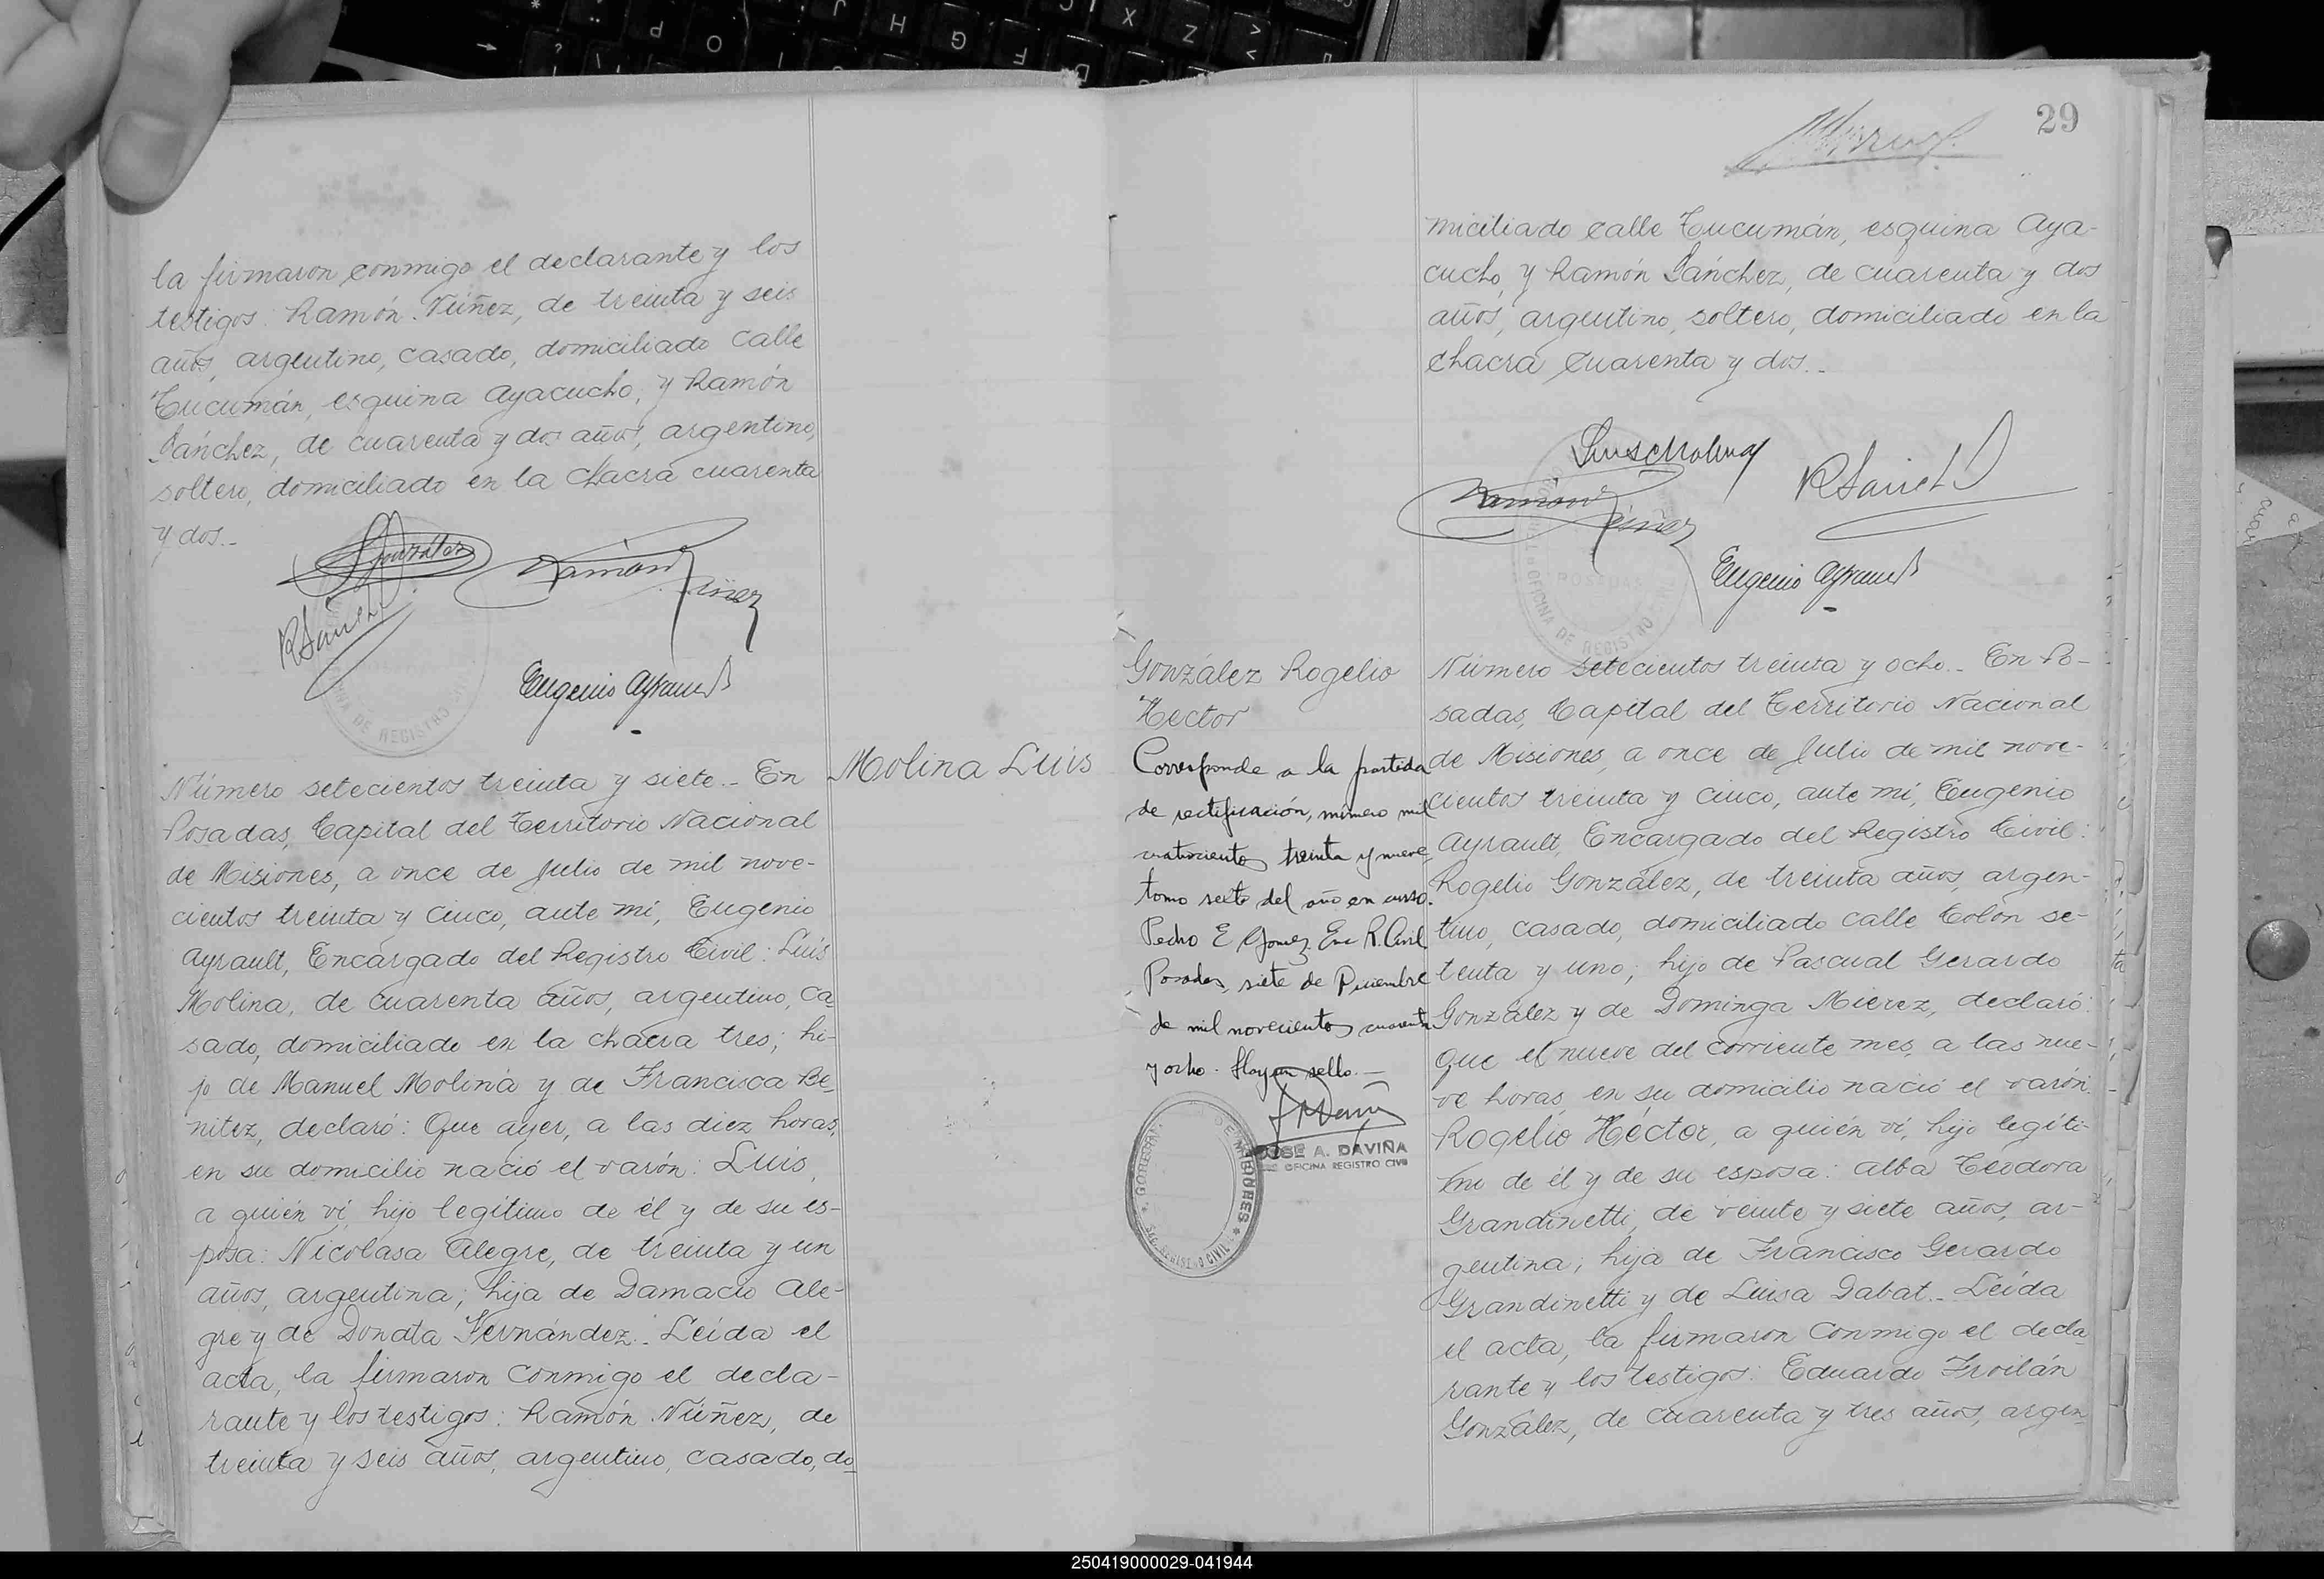 la firmaron conmigo el declarante y los
testigos: Ramón Núñez, de treinta y seis
años, argentino, casado, domiciliado calle
Tucumán, esquina Ayacucho, y Ramón
Sánchez, de cuarenta y dos años, argentino,
soltero, domiciliado en la chacra cuarenta
y dos.-
González
Ramón Núñez
R Sánchez
Eugenio Ayrault
Número setecientos treinta y siete.- En
Posadas, Capital del Territorio Nacional
de Misiones, a once de Julio de mil nove-
cientos treinta y cinco, ante mí, Eugenio
Ayrault, Encargado del Registro Civil: Luis
Molina, de cuarenta años, argentino, ca-
sado, domiciliado en la chacra tres; hi-
jo de Manuel Molina y de Francisca Be-
nitez, declaró: Que ayer, a las diez horas,
en su domicilio nació el varón: Luis,
a quién ví, hijo legítimo de él y de su es-
posa: Nicolasa Alegre, de treinta y un
años, argentina; hija de Damacio Ale-
gre y de Donata Fernández.- Leída el
acta, la firmaron conmigo el decla-
rante y los testigos: Ramón Núñez, de
treinta y seis años, argentino, casado, do-
Molina Luis
29
miciliado calle Tucumán, esquina Aya-
cucho, y Ramón Sánchez, de cuarenta y dos
años, argentino, soltero, domiciliado en la
chacra cuarenta y dos.-
Luis Molina
Ramón Núñez
R Sánchez
Eugenio Ayrault
POSADAS
OFICINA DE REGISTRO
González Rogelio
Hector
Corresponde a la partida
de rectificación, número mil
cuatrocientos treinta y nueve
tomo sexto del año en curso.
Pedro E Gomez Enc R. Civil
Posadas, siete de Diciembre
de mil novecientos cuarenta
y ocho. Hay un sello.-
JOSE A. DAVIÑA
OFICINA REGISTRO CIVIL
Número setecientos treinta y ocho.- En Po-
sadas, Capital del Territorio Nacional
de Misiones, a once de Julio de mil nove-
cientos treinta y cinco, ante mí, Eugenio
Ayrault, Encargado del Registro Civil:
Rogelio González, de treinta años, argen-
tino, casado, domiciliado calle Colón se-
tenta y uno; hijo de Pascual Gerardo
González y de Dominga Mierez, declaró:
Que el nueve del corriente mes, a las nue-
ve horas, en su domicilio nació el varón:
Rogelio Héctor, a quién ví, hijo legíti-
mo de él y de su esposa: Alba Teodora
Grandinetti, de veinte y siete años, ar-
gentina; hija de Francisco Gerardo
Grandinetti y de Luisa Dabat.- Leída
el acta, la firmaron conmigo el decla-
rante y los testigos: Eduardo Froilán
González, de cuarenta y tres años, argen-
250419000029-041944